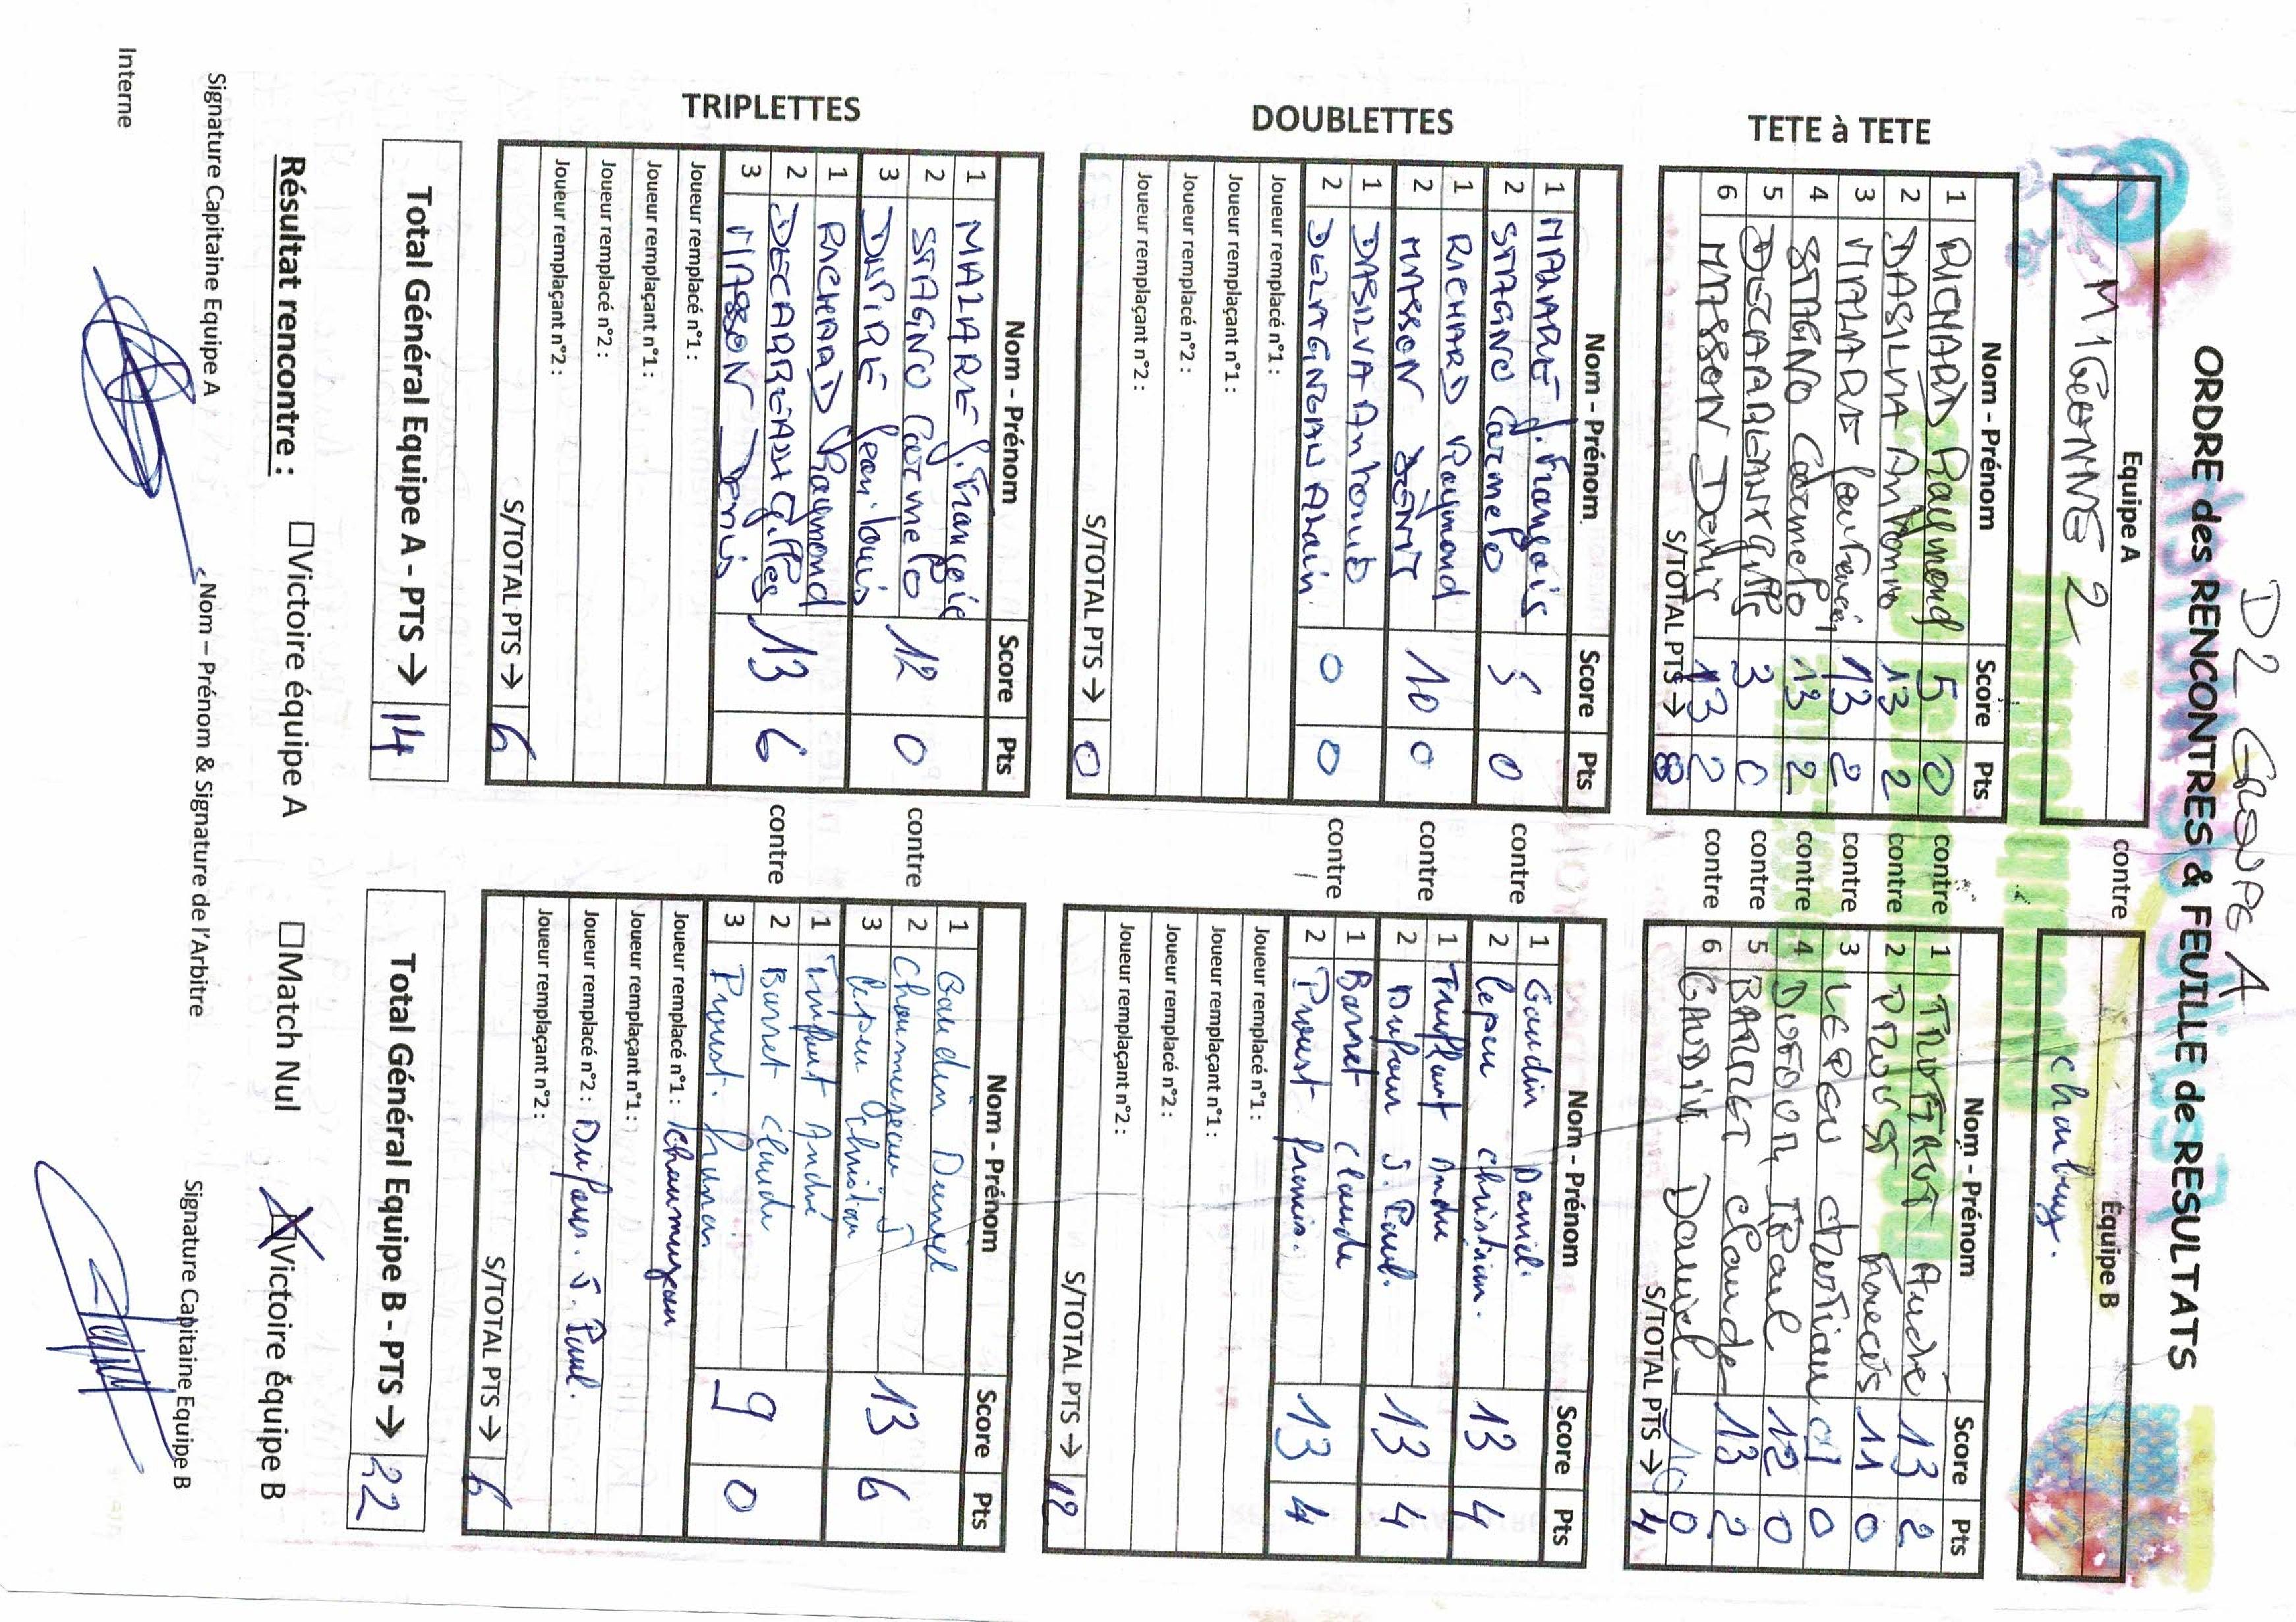 D2 GROUPE A
ORDRE des RENCONTRES & FEUILLE de RESULTATS
Equipe A contre Equipe B
MIGEANNE 2 Charbuy.
TETE à TETE
Nom - Prénom Score Pts Nom - Prénom Score Pts
1 RICHARD Raymond 5 0 contre 1 TRUFFAUT André 13 2
2 DASILVA Antonio 13 2 contre 2 PROUST Francois 11 0
3 MALARE Jean François 13 2 contre 3 LEPEU Christian 0
4 STAGNO Carmelo 13 2 contre 4 DUFOUR JPaul 12 0
5 Gilles 3 0 contre 5 BARRET Claude 13 2
6 MASSON Denis 13 2 contre 6 GAUDIN Daniel 10 0
S/TOTAL PTS → 8 S/TOTAL PTS → 4
DOUBLETTES
Nom - Prénom Score Pts Nom - Prénom Score Pts
1 MALARE J.François 1 Gaudin Daniel.
2 STAGNO Carmelo 5 0 contre 2 Lepeu Christian. 13 4
1 RICHARD Raymond 1 Truffaut André
2 MASSON DENIS 10 0 contre 2 Dufour J. Paul. 13 4
1 DASILVA Antonio 1 Barret Claude
2 Alain 0 0 contre 2 Proust Francis. 13 4
Joueur remplacé n°1 : Joueur remplacé n°1 :
Joueur remplaçant n°1 : Joueur remplaçant n°1 :
Joueur remplacé n°2 : Joueur remplacé n°2 :
Joueur remplaçant n°2 : Joueur remplaçant n°2 :
S/TOTAL PTS → 0 S/TOTAL PTS → 12
TRIPLETTES
Nom - Prénom Score Pts Nom - Prénom Score Pts
1 MALARE J.François 1 Gaudin Daniel
2 STAGNO Carmelo 12 0 contre 2 Chaumuzeau J 13 6
3 Jean Louis 3 Lepeu Christian
1 RICHARD Raymond 1 Truffaut André
2 Gilles 13 6 contre 2 Barret Claude 9 0
3 MASSON Denis 3 Proust.
Joueur remplacé n°1 : Joueur remplacé n°1 : Chaumuzeau
Joueur remplaçant n°1 : Joueur remplaçant n°1 :
Joueur remplacé n°2 : Joueur remplacé n°2 : Dufour. J. Paul.
Joueur remplaçant n°2 : Joueur remplaçant n°2 :
S/TOTAL PTS → 6 S/TOTAL PTS → 6
Total Général Equipe A - PTS → 14 Total Général Equipe B - PTS → 22
Résultat rencontre : □Victoire équipe A □Match Nul ☒Victoire équipe B
Signature Capitaine Equipe A Nom – Prénom & Signature de l'Arbitre Signature Capitaine Equipe B
Interne